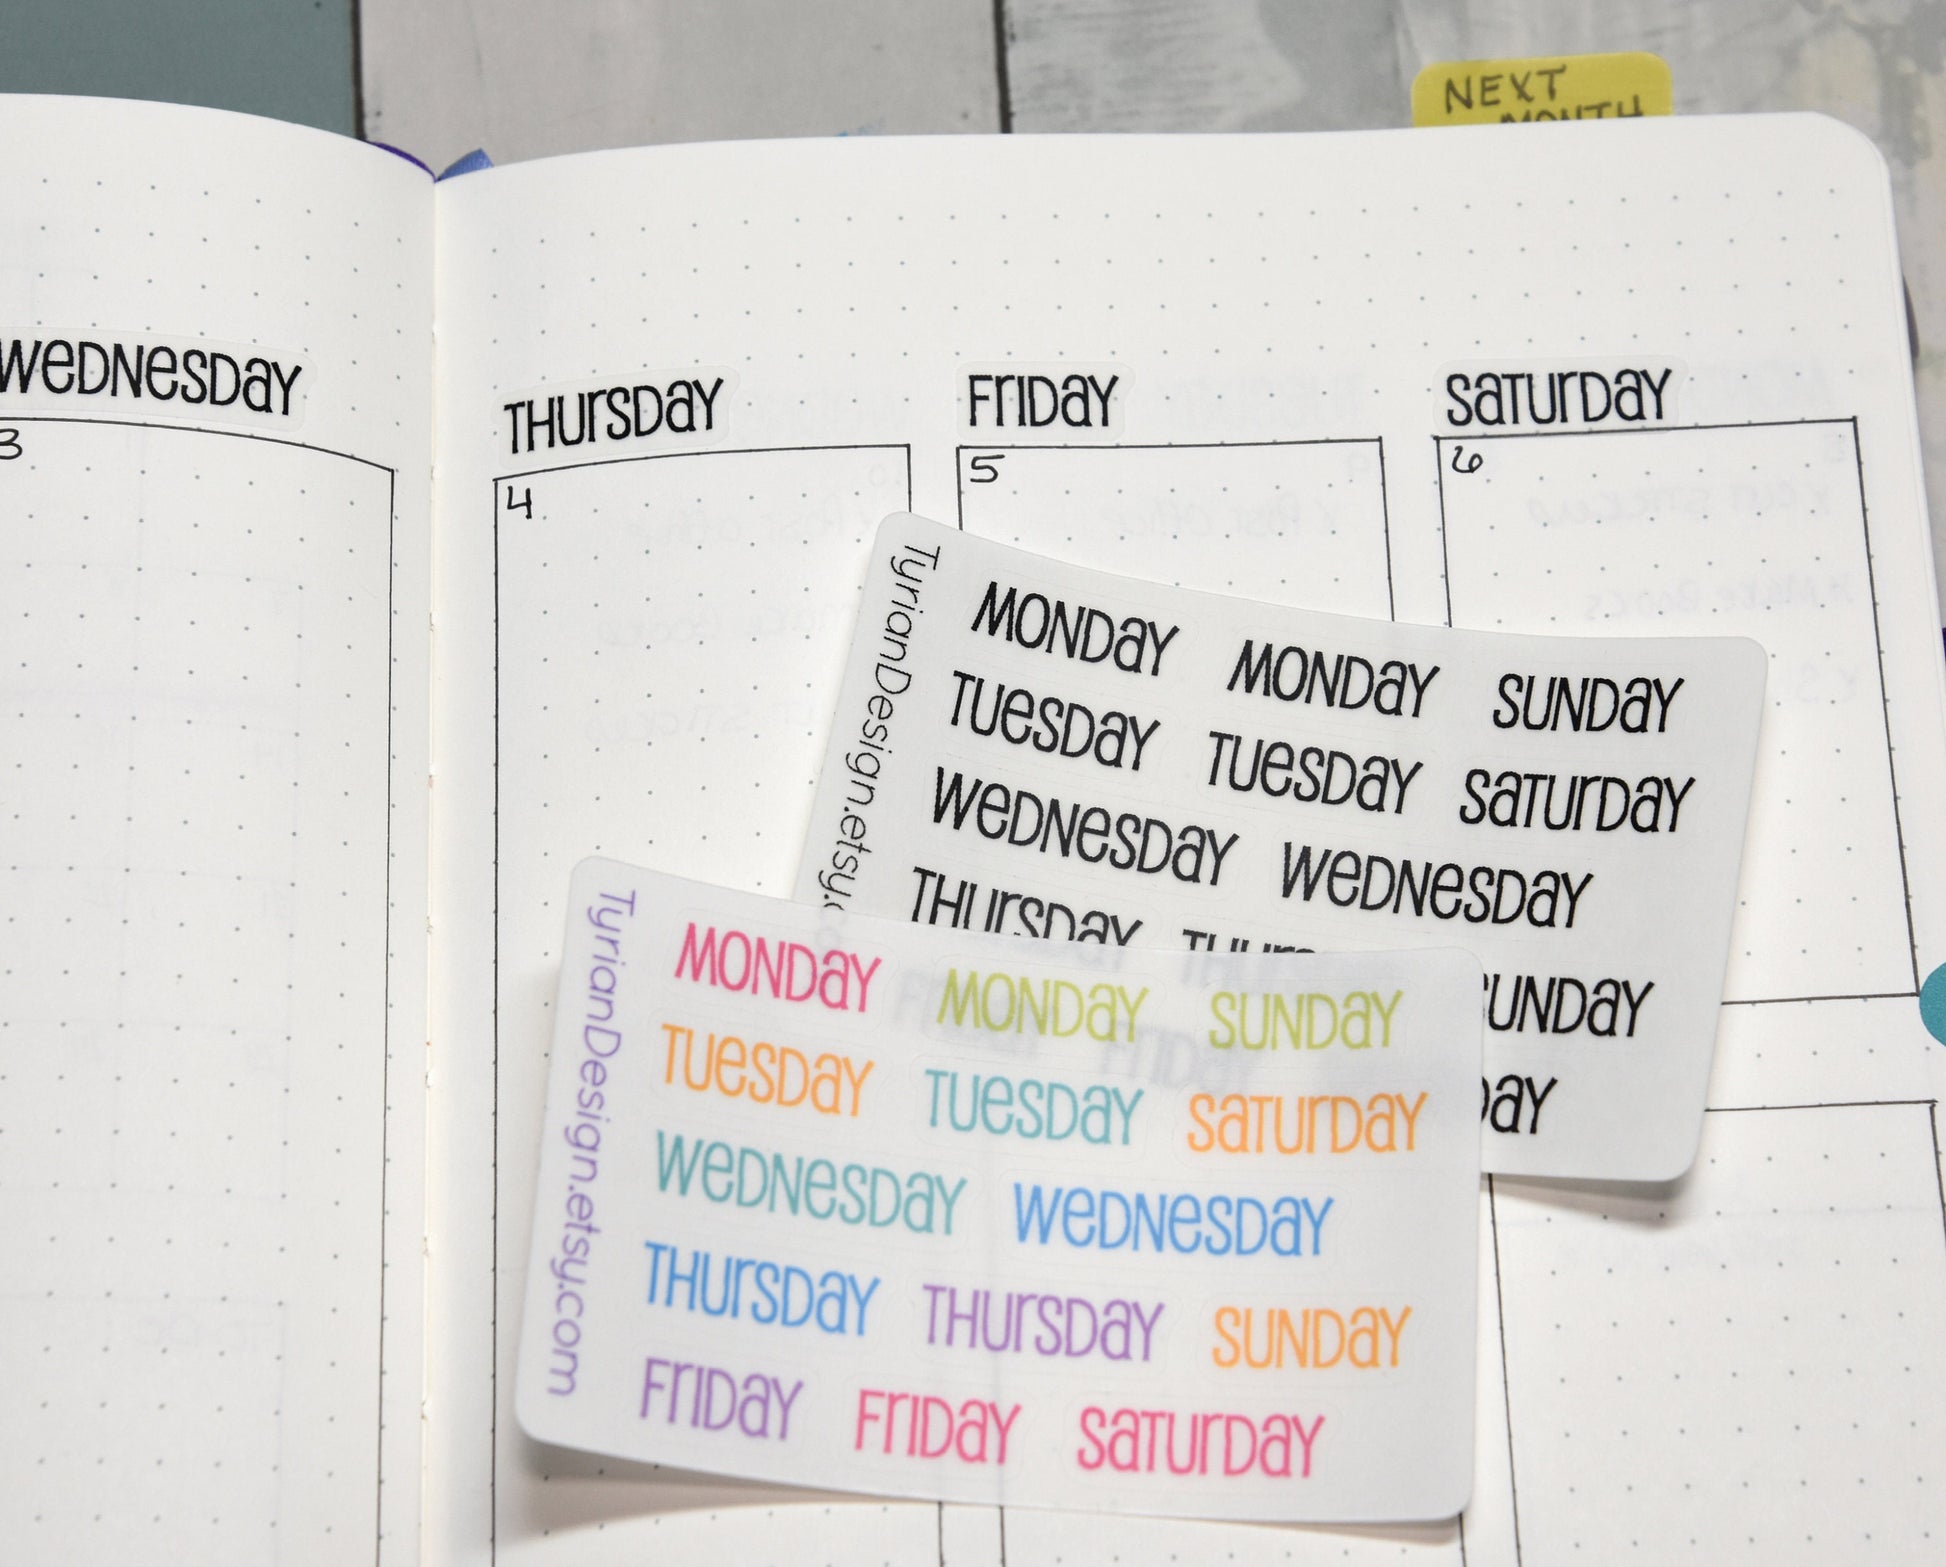 NEXT
MONTH
WEDNESDAY
THURSDAY
FRIDAY
SATURDAY
3
4
5
6
TyrianDesign.etsy.c
MONDAY MONDAY SUNDAY
TUESDAY TUESDAY SATURDAY
WEDNESDAY WEDNESDAY
THURSDAY THUR
SUNDAY
DAY
TyrianDesign.etsy.com
MONDAY MONDAY SUNDAY
TUESDAY TUESDAY SATURDAY
WEDNESDAY WEDNESDAY
THURSDAY THURSDAY SUNDAY
FRIDAY FRIDAY SATURDAY